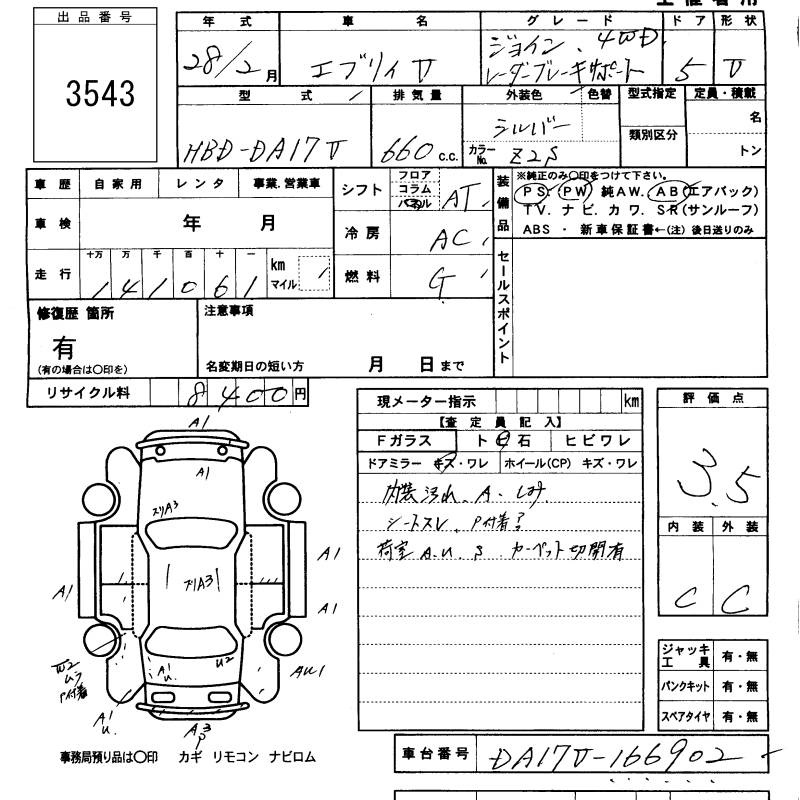 出品番号
3543
年式 車名 グレード ドア 形状
28/2月 エブリィV ジョイン、4WD レーダーブレーキサポート 5 V
型式 排気量 外装色 色替 型式指定 定員・積載
HBD-DA17V 660c.c. シルバー
カラーNo. Z2S 類別区分 名
トン
車歴 自家用 レンタ 事業.営業車
車検 年 月
走行 十万 万 千 百 十 一
141061 km マイル
シフト フロア コラム パネル AT
冷房 AC
燃料 G
装備品
※純正のみ〇印をつけて下さい。
PS. PW 純AW. AB(エアバック)
TV. ナビ. カワ. SR(サンルーフ)
ABS ・ 新車保証書←(注) 後日送りのみ
セールスポイント
修復歴 箇所
有
(有の場合は〇印を)
注意事項
名変期日の短い方 月 日まで
リサイクル料 8400円
現メーター指示 km
【査定員記入】
Fガラス ト石 ヒビワレ
ドアミラー キズ・ワレ ホイール(CP) キズ・ワレ
内装汚れ、A、しみ
シートスレ、P付着
荷室A.U.S カーペット切開有
評価点
3.5
内装 外装
C C
ジャッキ工具 有・無
パンクキット 有・無
スペアタイヤ 有・無
A1
A1
スリA3
スリA3
A1
A1
A1
W2
ムラ
P付着
A1
U.
U2
AU1
A1
U.
A3
P
事務局預り品は〇印 カギ リモコン ナビロム
車台番号 DA17V-166902